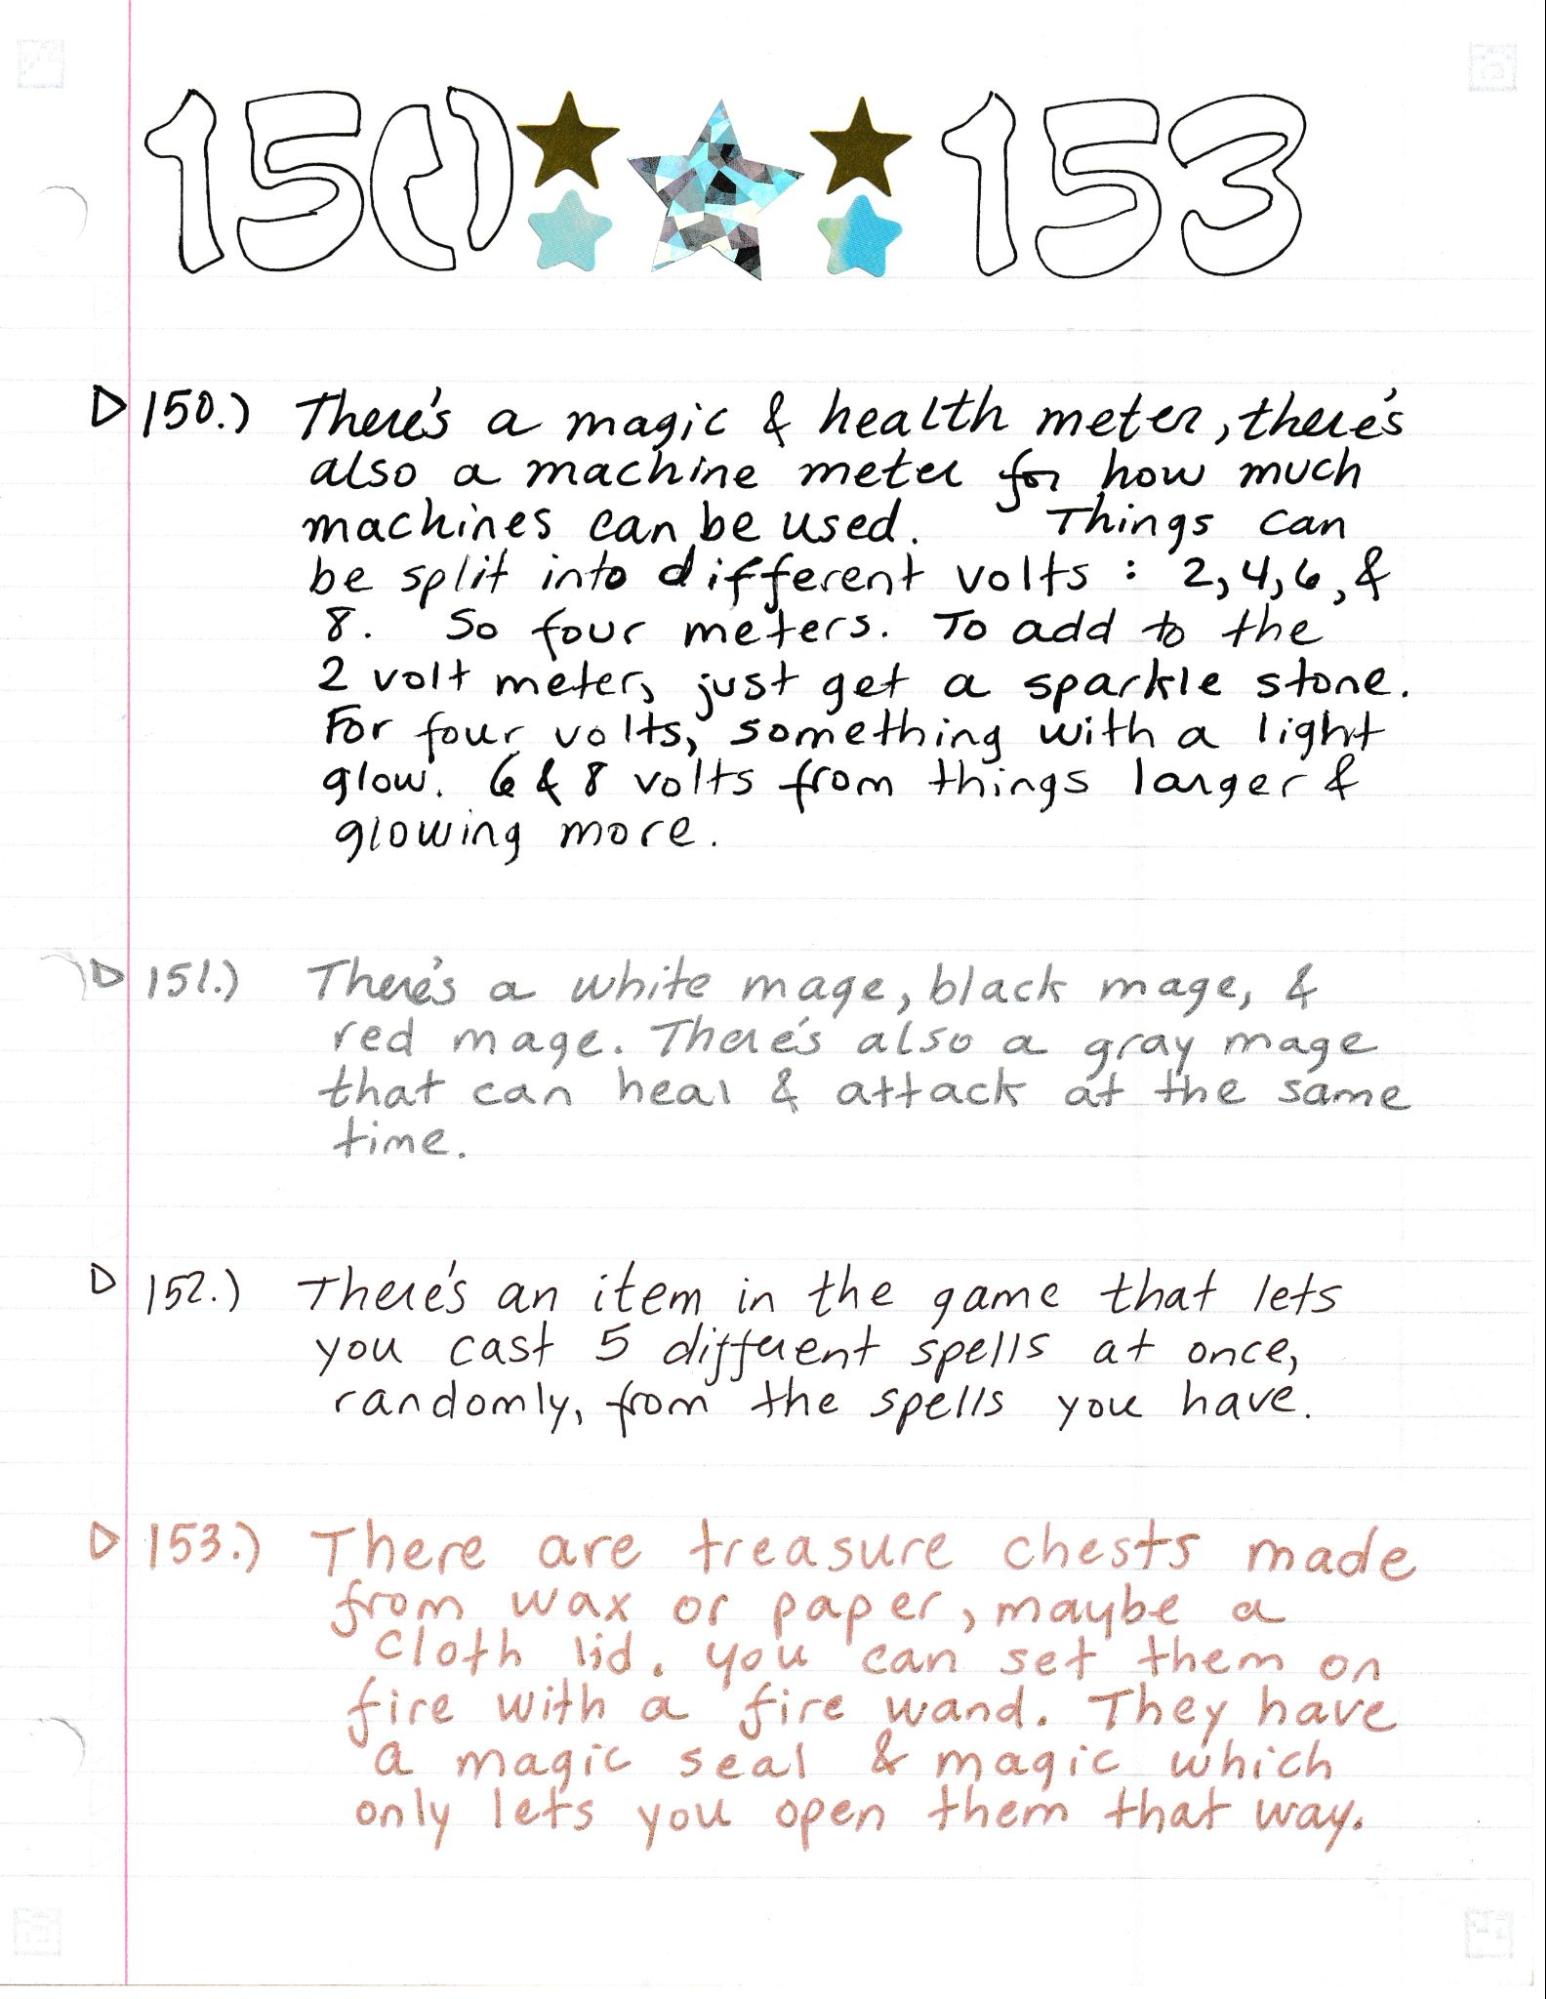 150 153
150.) There's a magic & health meter, there's
also a machine meter for how much
machines can be used. Things can
be split into different volts : 2, 4, 6, &
8. So four meters. To add to the
2 volt meter, just get a sparkle stone.
For four volts, something with a light
glow. 6 & 8 volts from things larger &
glowing more.
151.) There's a white mage, black mage, &
red mage. There's also a gray mage
that can heal & attack at the same
time.
152.) There's an item in the game that lets
you cast 5 different spells at once,
randomly, from the spells you have.
153.) There are treasure chests made
from wax or paper, maybe a
cloth lid. you can set them on
fire with a fire wand. They have
a magic seal & magic which
only lets you open them that way.